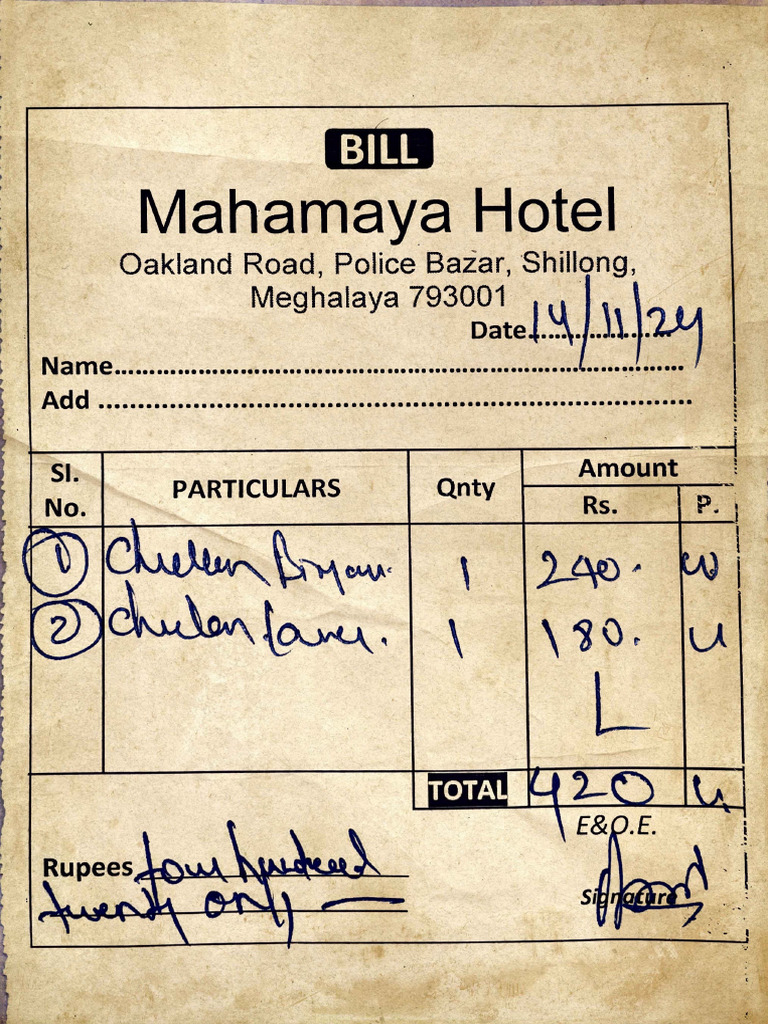 BILL
Mahamaya Hotel
Oakland Road, Police Bazar, Shillong,
Meghalaya 793001
Date 14/11/24
Name
Add
Sl. No. PARTICULARS Qnty Amount Rs. P.
1 Chicken 1 240.
2 Chicken 1 180.
TOTAL 420
E&O.E.
Rupees four hundred
twenty only
Signature